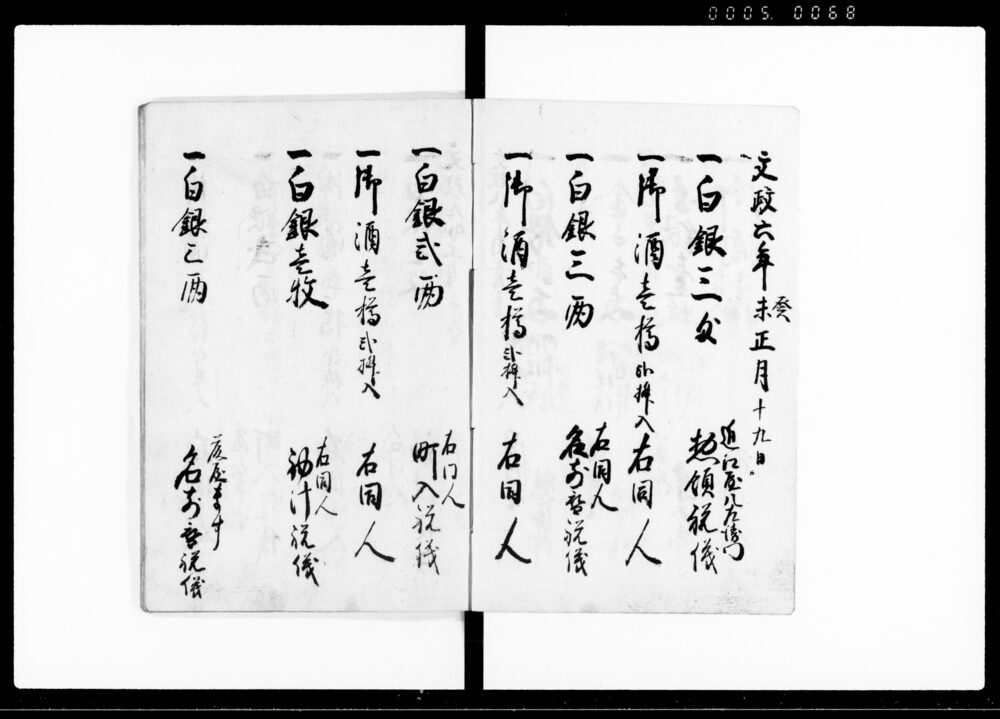 0005. 0068
文政六年癸未正月十九日
一白銀三匁
近江屋八左衛門
惣領祝儀
一御酒壱樽弐升入 右同人
一白銀三両
右同人
名前替祝儀
一御酒壱樽弐升入 右同人
一白銀弐両
右同人
町入祝儀
一御酒壱樽弐升入 右同人
一白銀壱枚
右同人
初汁祝儀
一白銀三両
名前替祝儀